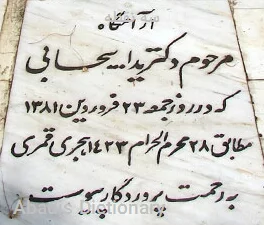 آرامگاه
مرحوم دکتر یدالله سحابی
که در روز جمعه ۲۳ فروردین ۱۳۸۱
مطابق ۲۸ محرم الحرام ۱۴۲۳ هجری قمری
به رحمت پروردگار پیوست
Abadis Dictionary